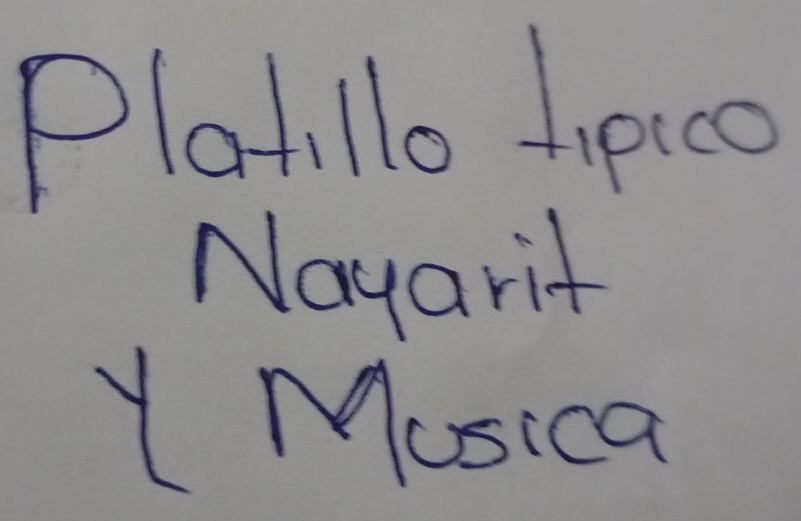 Platillo tipico
Nayarit
Y Musica